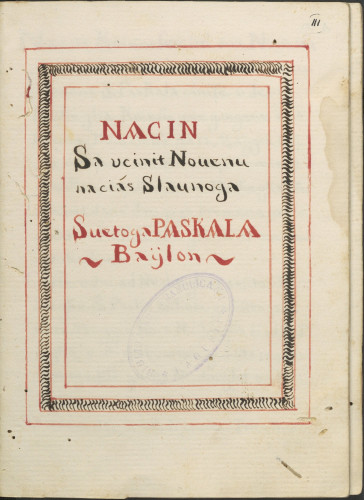 III
NACIN
Sa vcinit Nouenu
naciás Slaunoga
SuetogaPASKALA
~ Baÿlon ~